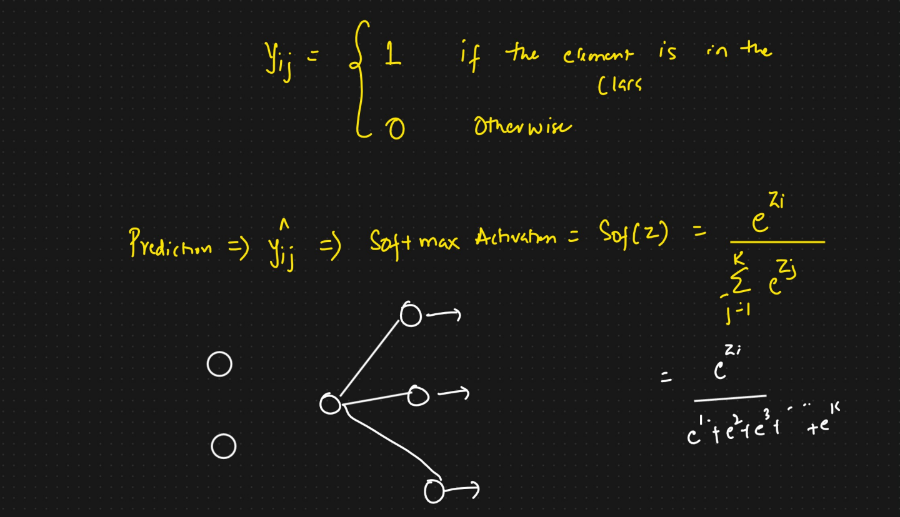 yij = { 1 if the element is in the
class
0 Otherwise
Prediction => ŷij => Softmax Activation = Sof(z) = e^zi / K Σ j=1 e^zj
= e^zi / e^1 + e^2 + e^3 + ..... + e^K